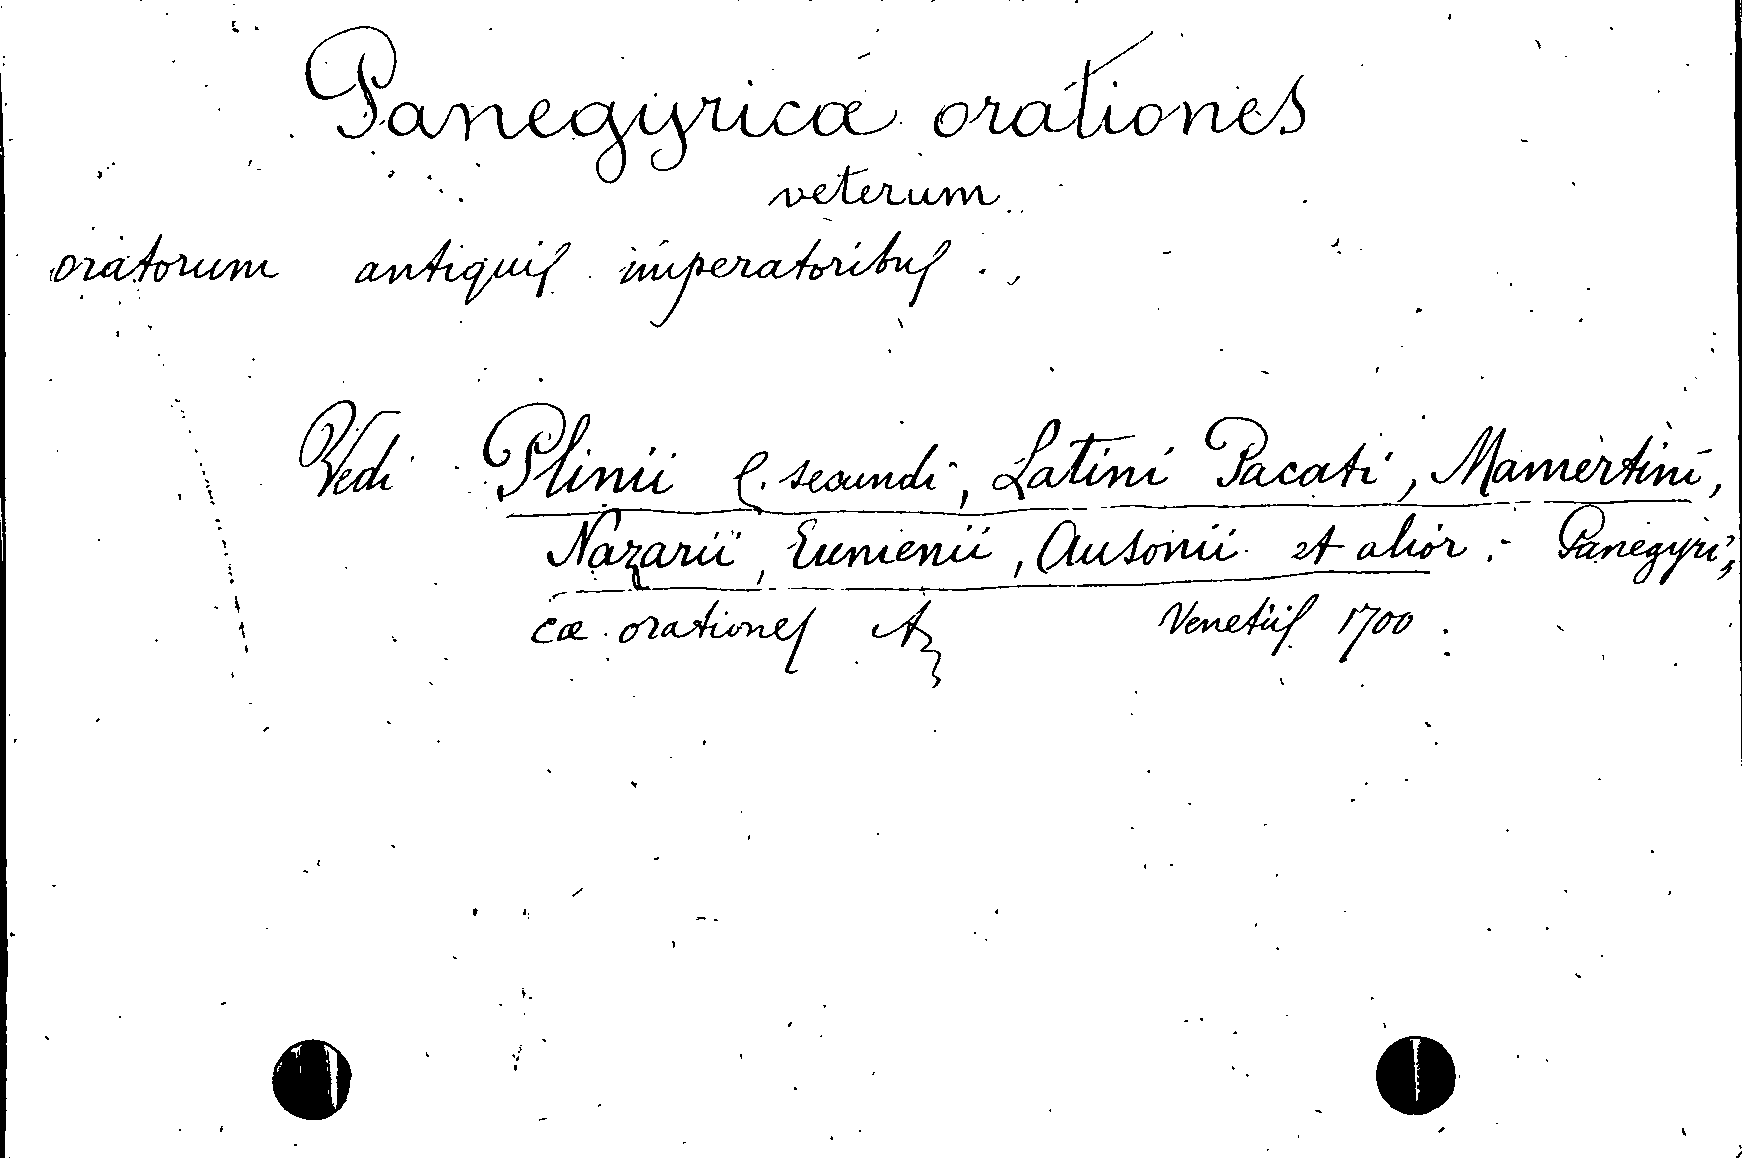 Panegyricæ orationes
veterum
oratorum antiquis imperatoribus.
Vedi Plinii C. secundi, Latini Pacati, Mamertini,
Nazarii, Eumenii, Ausonii et alior: Panegyri-
cæ orationes Venetiis 1700.